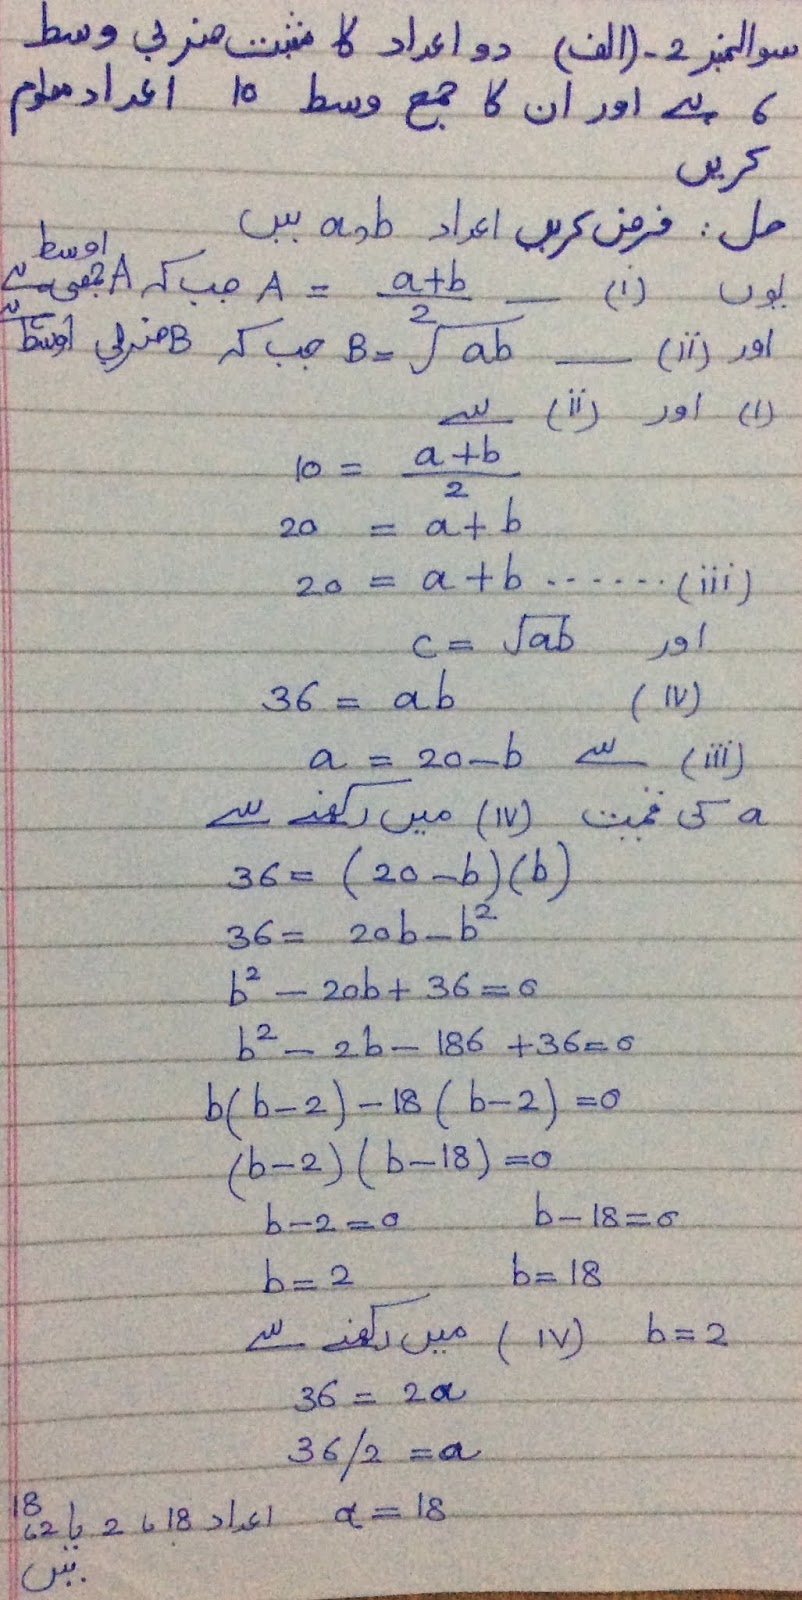 سوالنمبر 2-(الف) دو اعداد کا مثبت ضربی وسط
6 ہے اور ان کا جمع وسط 10 اعداد معلوم
کریں
حل: فرض کریں اعداد a,b ہیں
یوں (i) — A = (a+b)/2 جب کہ A جمعی اوسط ہے
اور (ii) — B = √ab جب کہ B ضربی اوسط ہے
(i) اور (ii) سے
10 = (a+b)/2
20 = a+b
20 = a+b ....... (iii)
اور c = √ab
36 = ab (iv)
(iii) سے a = 20-b
a کی قیمت (iv) میں رکھنے سے
36 = (20-b)(b)
36 = 20b-b²
b² - 20b + 36 = 0
b² - 2b - 18b + 36 = 0
b(b-2) - 18(b-2) = 0
(b-2)(b-18) = 0
b-2=0 b-18=0
b=2 b=18
b=2 (iv) میں رکھنے سے
36 = 2a
36/2 = a
a = 18 اعداد 18، 2 یا 2، 18
ہیں.